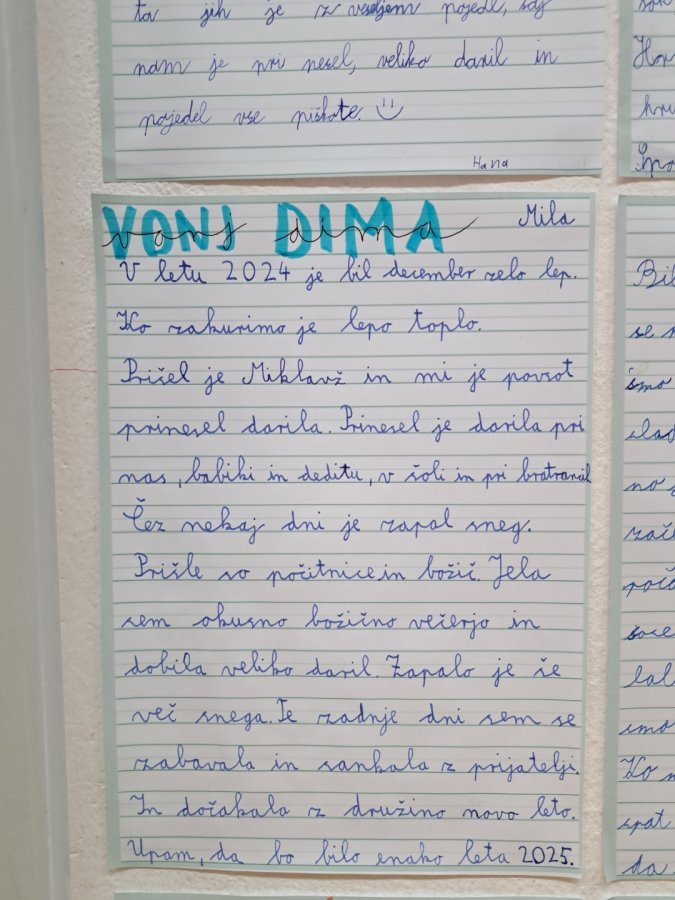 ta jih je z veseljem pojedl, saj
nam je pri nesel, veliko daril in
pojedel vse piškote.
Hana
VONJ DIMA
vonj dima
Mila
V letu 2024 je bil december zelo lep.
Ko zakurimo je lepo toplo.
Prišel je Miklavž in mi je povsot
prinesel darila. Prinesel je darila pri
nas, babiki in deditu, v šoli in pri bratrancih
Čez nekaj dni je zapal sneg.
Prišle so počitnice in božič. Jela
sem okusno božično večerjo in
dobila veliko daril. Zapalo je še
več snega. Te zadnje dni sem se
zabavala in sankala z prijatelji.
In dočakala z družino novo leto.
Upam, da bo bilo enako leta 2025.
Bil
se
smo
slad
no
zač
smo
Ko
spat
da